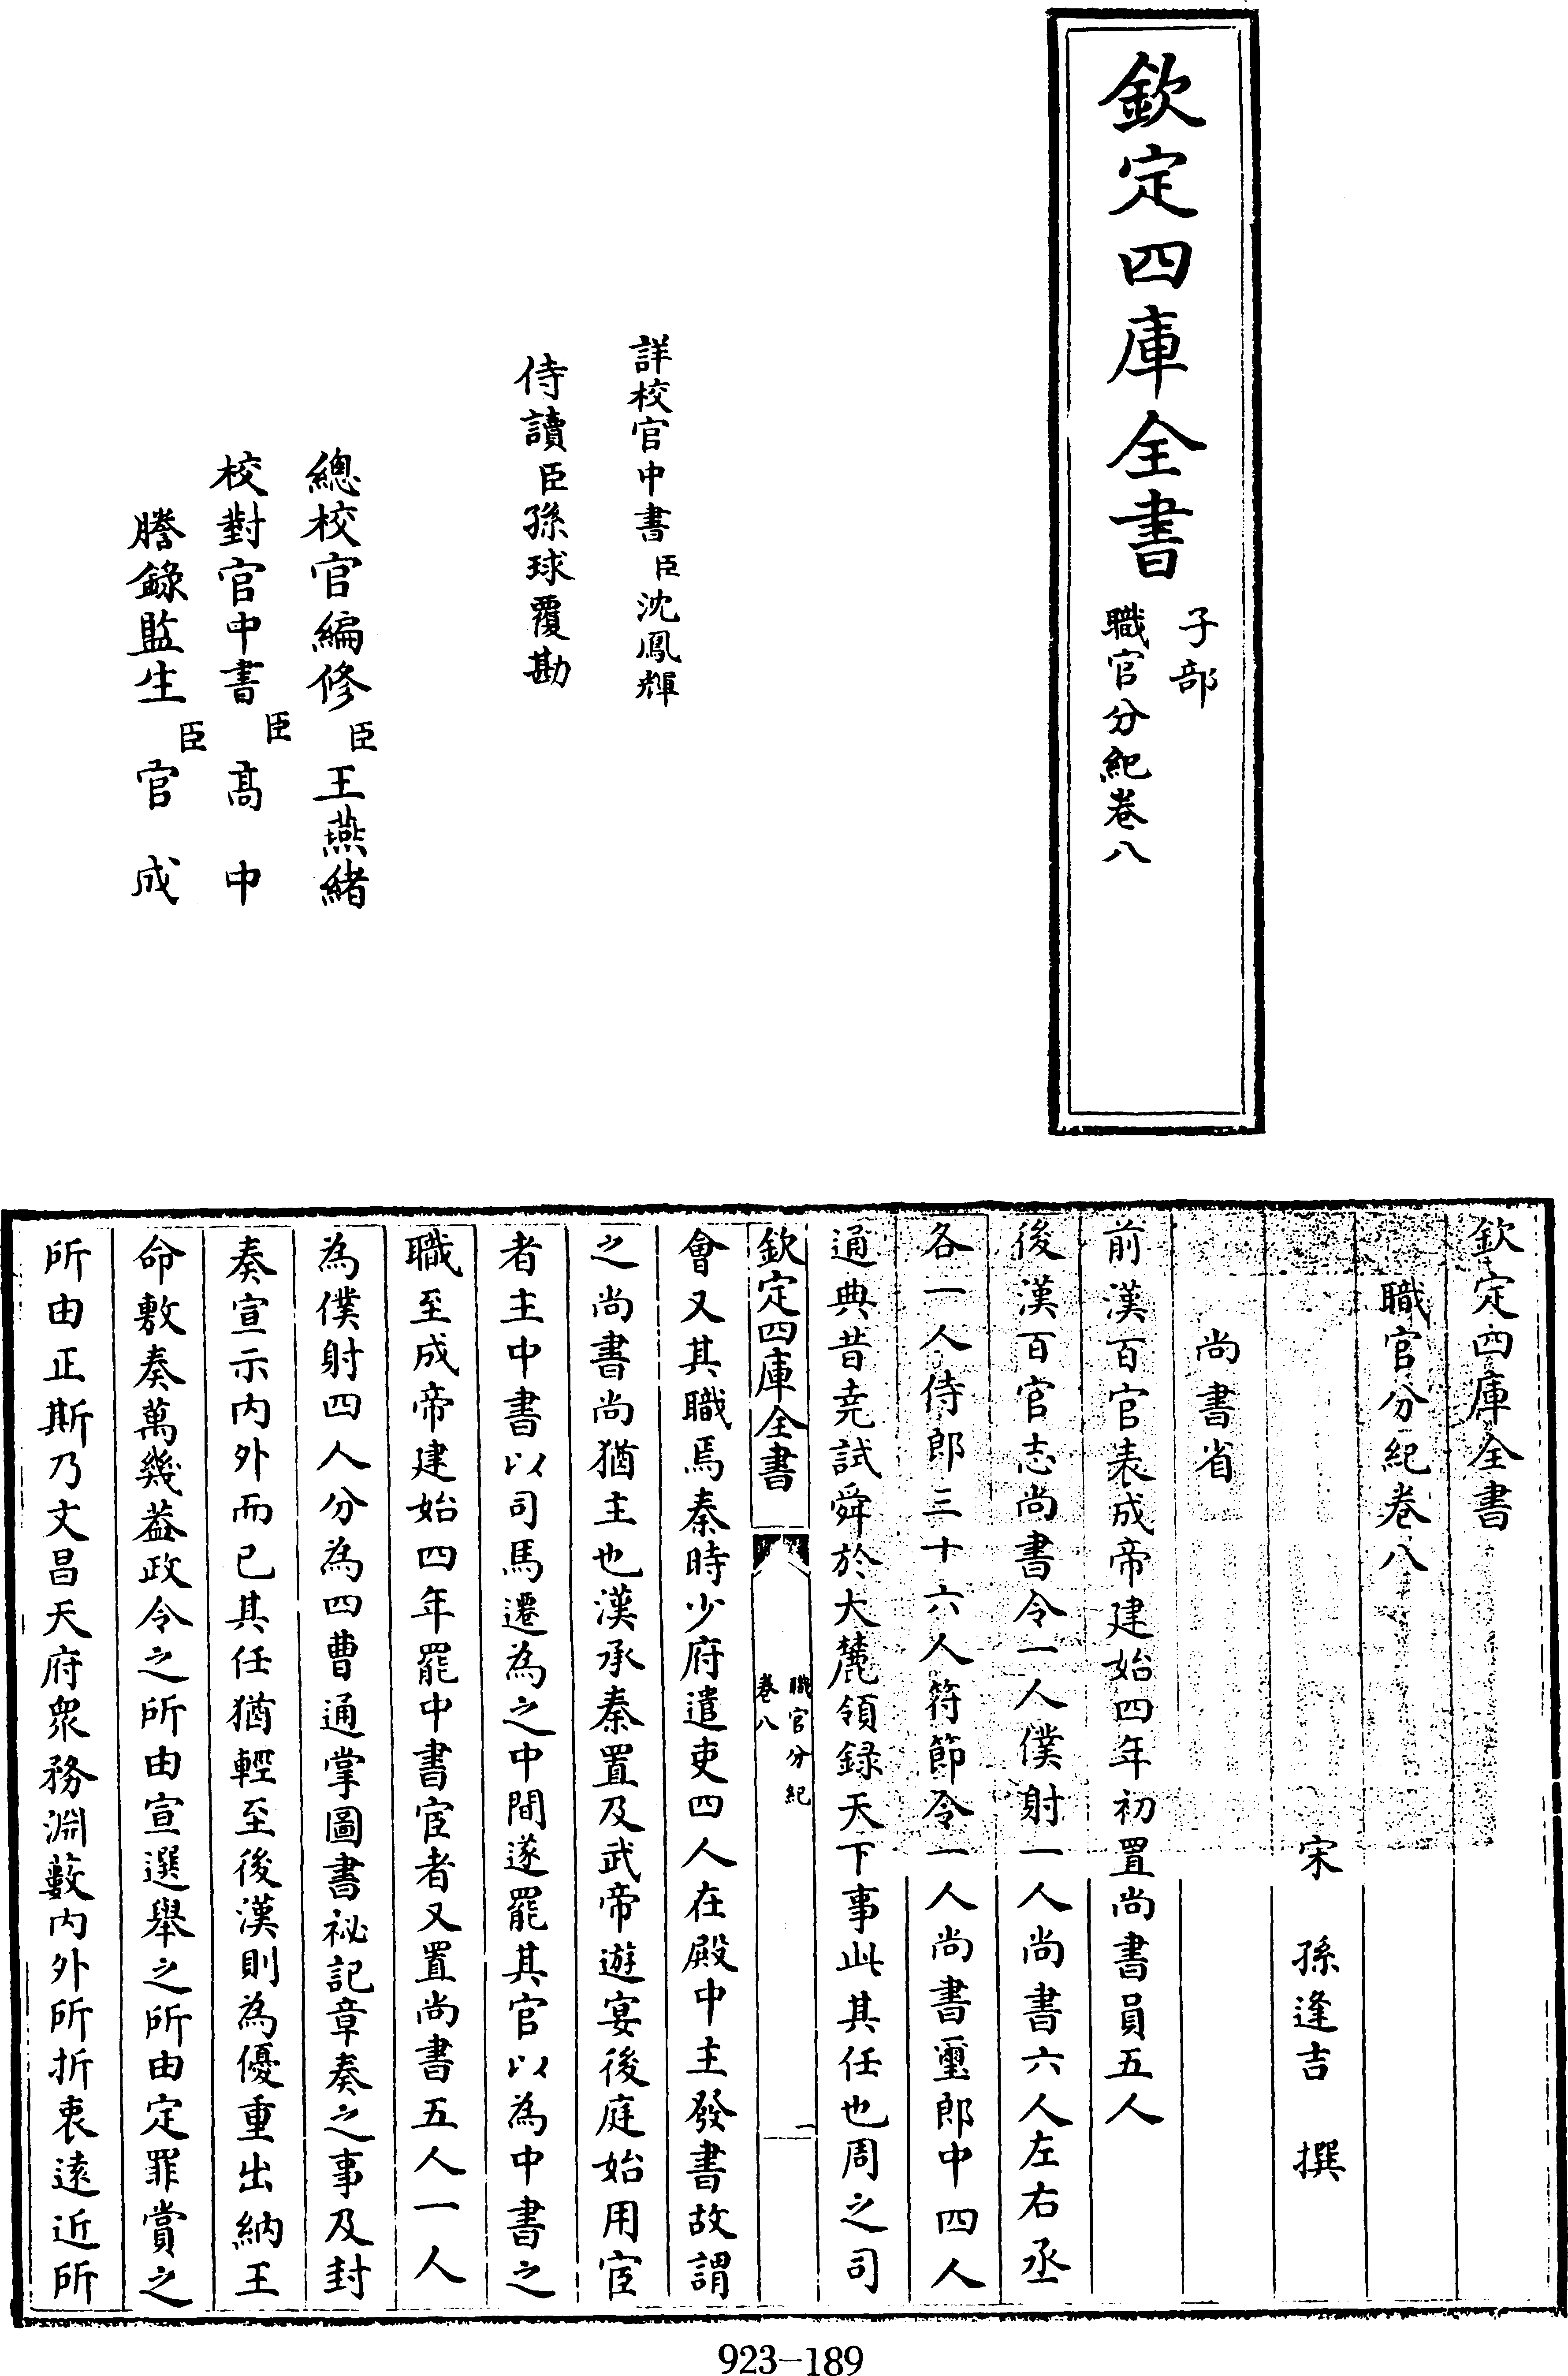 欽定四庫全書
子部
職官分紀卷八
詳校官中書臣沈鳳輝
侍讀臣孫球覆勘
總校官編修臣王燕緒
校對官中書臣高中
謄錄監生臣官成
欽定四庫全書
職官分紀卷八
宋 孫逢吉 撰
尚書省
前漢百官表成帝建始四年初置尚書員五人
後漢百官志尚書令一人僕射一人尚書六人左右丞
各一人侍郎三十六人符節令一人尚書璽郎中四人
通典昔堯試舜於大麓領録天下事此其任也周之司
欽定四庫全書
職官分紀
卷八
一
會又其職焉秦時少府遣吏四人在殿中主發書故謂
之尚書尚猶主也漢承秦置及武帝遊宴後庭始用宦
者主中書以司馬遷為之中間遂罷其官以為中書之
職至成帝建始四年罷中書宦者又置尚書五人一人
為僕射四人分為四曹通掌圖書祕記章奏之事及封
奏宣示內外而已其任猶輕至後漢則為優重出納王
命敷奏萬幾葢政令之所由宣選舉之所由定罪賞之
所由正斯乃文昌天府眾務淵藪內外所折衷遠近所
923-189